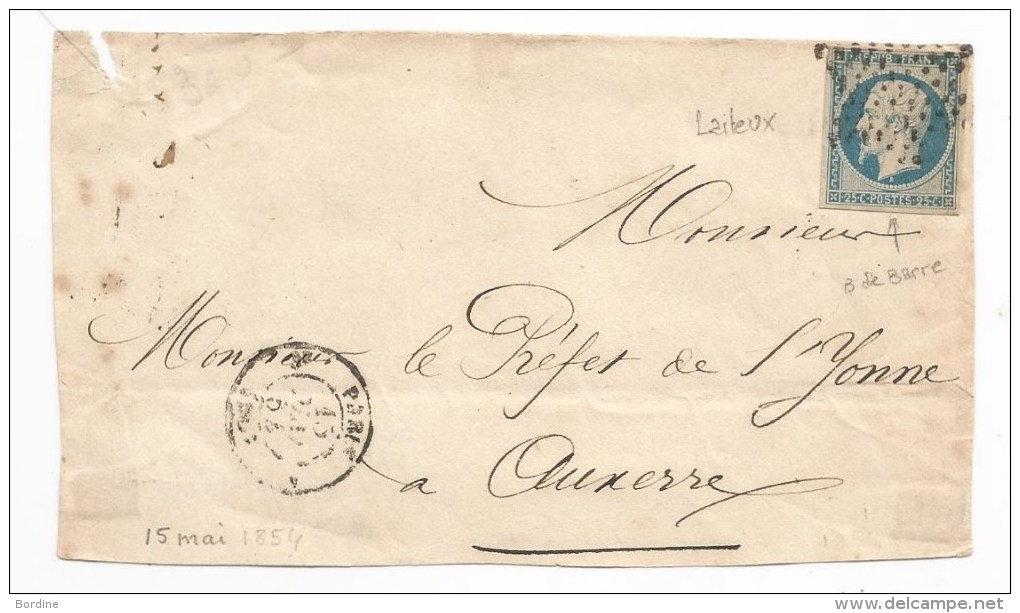 REPUB FRANC
Laiteux
25·C·POSTES·25·C
Monsieur
B de Barre
Monsieur le Préfet de l'Yonne
PARIS
15
à Auxerre
15 mai 1854
Bordine
www.delcampe.net